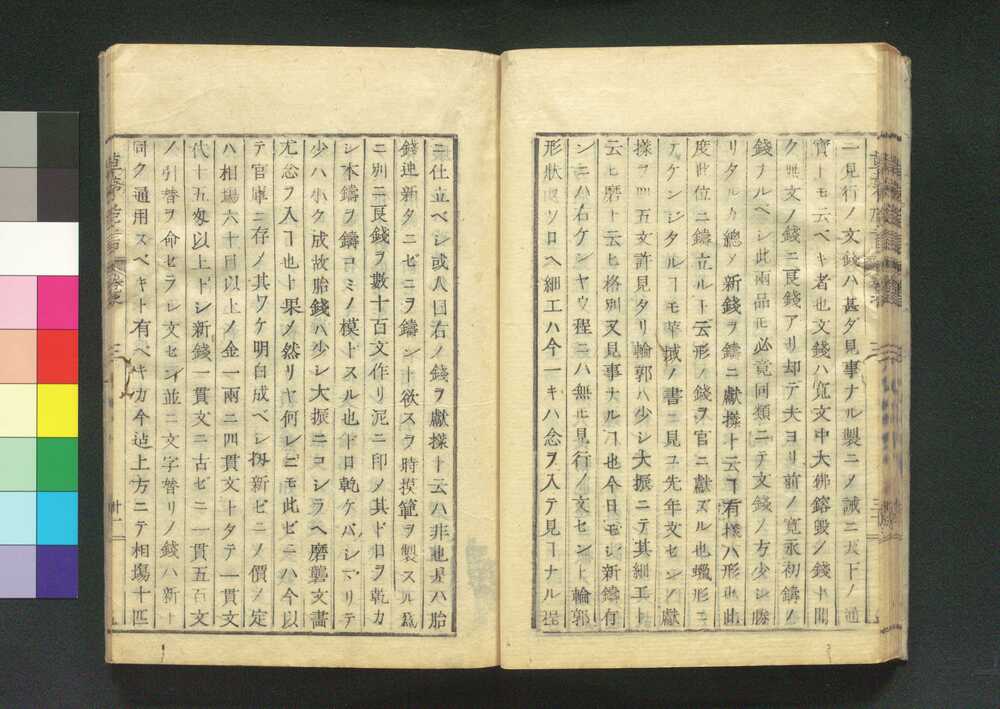 一見行ノ文錢ハ甚ダ見事ナル製ニノ誠ニ天下ノ通
寶トモ云ベキ者也文錢ハ寛文中大佛鎔毀ノ錢ト聞
ク無文ノ錢ニ良錢アリ却デ夫ヨリ前ノ寛永初鑄ノ
錢ナルベシ此兩品ㇳモ必竟同類ニテ文錢ノ方少シ勝
リタルカ總ノ新錢ヲ鑄ニ獻様ト云ヿ有樣ハ形也此
度此位ニ鑄立ルト云形ノ錢ヲ官ニ獻ズル也蠟形ニ
アケンジタルヿモ華域ノ書ニ見ユ先年文センノ獻
樣ヲ四五文許見タリ輪郭ハ少シ大振ニテ其細工ト
云ヒ磨ト云ヒ格別又見事ナルヿ也今日モシ新鑄有
ンニハ右ケンヤウ程ニハ無ㇳモ見行ノ文セント輪郭
形狀ヲソロヘ細工ハ今一キハ念ヲ入テ見ヿナル程
ニ仕立ベシ或人曰右ノ錢ヲ獻様ト云ハ非也是ハ胎
錢連新タニゼニヲ鑄ント欲スラ時摸範ヲ製スル爲
ニ別ニ良錢ヲ數十百文作リ泥ニ印メ其ドロヲ乾カ
シ本鑄ヲ鑄コミノ模トスル也ドロ乾ケバシマリテ
少ハ小ク成故胎錢ハ少シ大振ニコシラヘ磨礱文畵
尤念ヲ入ヿ也ト果メ然リヤ何レニモ此ゼニハ今以
テ官庫ニ存ノ其ワケ明白成ベシ扨新ゼニノ價ノ定
ハ相場六十目以上ノ金一兩ニ四貫文トタテ一貫文
代十五匁以上トシ新錢一貫文ニ古ゼニ一貫五百文
ノ引替ヲ命セラレ文セン並ニ文字替リノ錢ハ新ト
同ク通用スベキト有ベキカ今迠上方ニテ相塲十匹